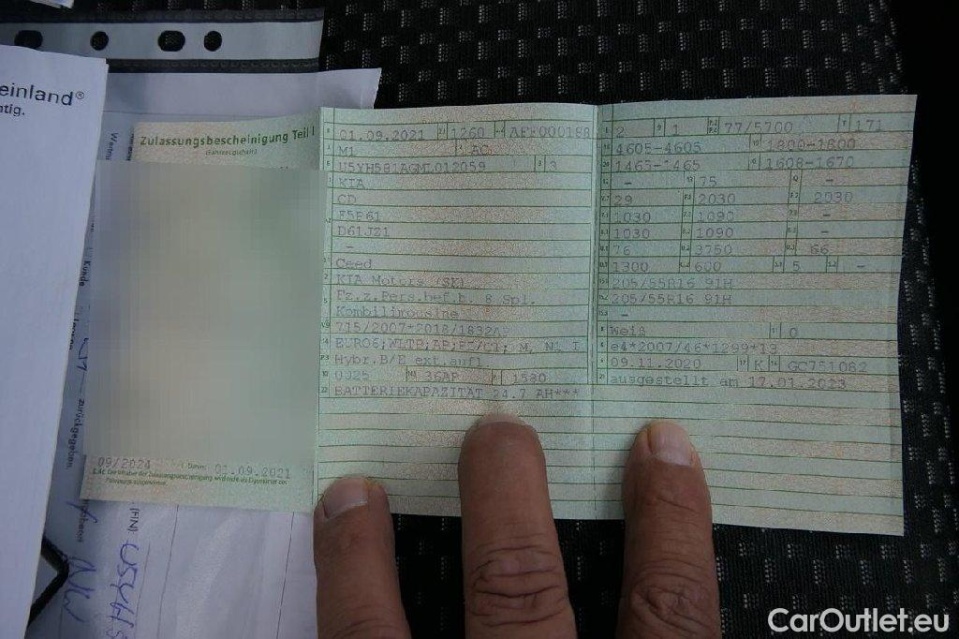 einland®
htig.
Zulassungsbescheinigung Teil I
(Fahrzeugschein)
01.09.2021 1260 AFF000188
M1 AC
U5YH581AGML012059 3
KIA
CD
F5P61
D61JZ1
-
Ceed
KIA Motors (SK)
Fz.z.Pers.bef.b. 8 Spl.
Kombilimousine
715/2007*2018/1832AP
EURO6;WLTP;AP;PI/CI; M, N1 I
Hybr.B/E ext.aufl
0025 36AP 1580
BATTERIEKAPAZITÄT 24.7 AH***
09/2024 01.09.2021
2 1 77/5700 171
4605-4605 1800-1800
1465-1465 1608-1670
- 75 -
29 2030 2030
1030 1090 -
1030 1090 -
76 3750 66
1300 600 5 -
205/55R16 91H
205/55R16 91H
-
Weiß 0
e4*2007/46*1299*13
09.11.2020 K
ausgestellt am 17.01.2023
Kunde
zurückgegeben
(FIN) U5YH5
CarOutlet.eu